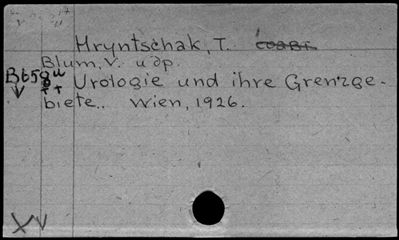 Hryntschak, T. соавт.
Blum, V. и др.
B658u Urologie und ihre Grenzge-
biete.. Wien, 1926.